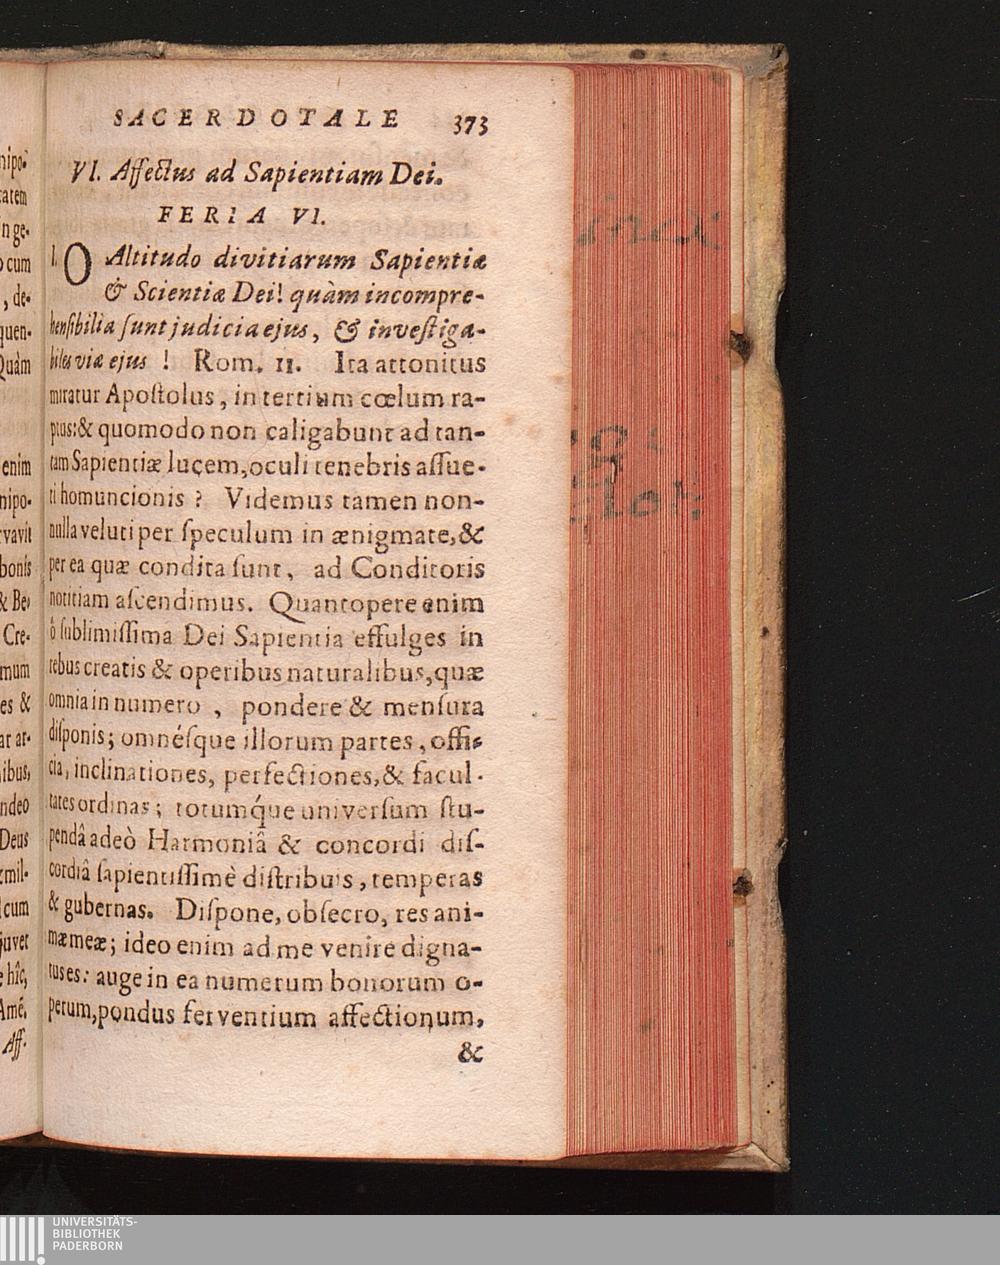 SACERDOTALE 373
VI. Affectus ad Sapientiam Dei.
FERIA VI.
I. O Altitudo divitiarum Sapientiæ
& Scientiæ Dei! quàm incompre-
hensibilia ſunt judicia ejus, & inveſtiga-
biles viæ ejus ! Rom. 11. Ita attonitus
miratur Apoſtolus, in tertium cœlum ra-
ptus: & quomodo non caligabunt ad tan-
tam Sapientiæ lucem, oculi tenebris aſſue-
ti homuncionis ? Videmus tamen non-
nulla veluti per ſpeculum in ænigmate, &
per ea quæ condita ſunt, ad Conditoris
notitiam aſcendimus. Quantopere enim
ô ſublimiſſima Dei Sapientia effulges in
rebus creatis & operibus naturalibus, quæ
omnia in numero , pondere & menſura
diſponis; omnéſque illorum partes, offi-
cia, inclinationes, perfectiones, & facul-
tates ordinas; totumq́ue univerſum ſtu-
pendâ adeò Harmoniâ & concordi diſ-
cordiâ ſapientiſſimè diſtribuis, temperas
& gubernas. Diſpone, obſecro, res ani-
mæ meæ; ideo enim ad me venire digna-
tus es: auge in ea numerum bonorum o-
perum, pondus ferventium affectionum,
&
nipo-
tatem
n ge-
o cum
, de-
quen-
Quàm
enim
nipo-
rvavit
bonis
& Be-
Cre-
mum
es &
ar ar-
ibus,
ndeo
Deus
mil-
cum
juvet
hîc,
Amẽ.
Aff-
UNIVERSITÄTS-
BIBLIOTHEK
PADERBORN